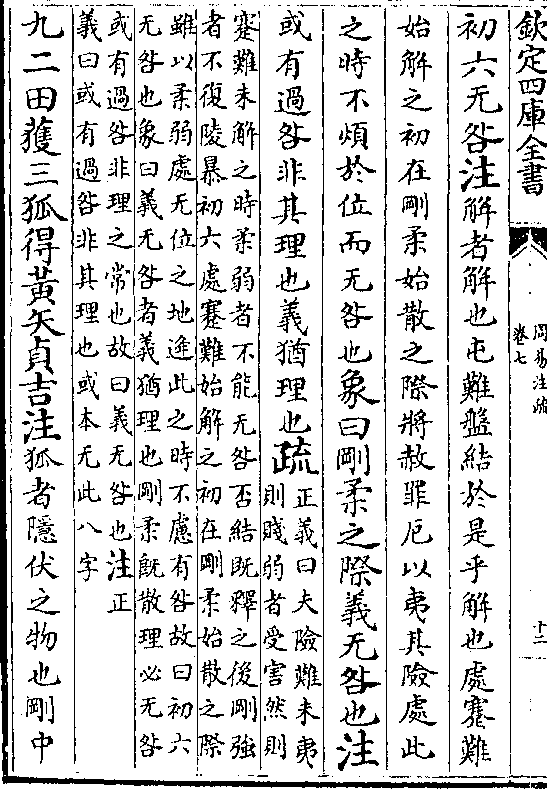 欽定四庫全書
周易注疏
卷七
十二
初六无咎注解者解也屯難盤結於是乎解也處蹇難
始解之初在剛柔始散之際將赦罪厄以夷其險處此
之時不煩於位而无咎也象曰剛柔之際義无咎也注
或有過咎非其理也義猶理也疏
正義曰夫險難未夷
則賤弱者受害然則
蹇難未解之時柔弱者不能无咎否結既釋之後剛強
者不復陵暴初六處蹇難始解之初在剛柔始散之際
雖以柔弱處无位之地逢此之時不慮有咎故曰初六
无咎也象曰義无咎者義猶理也剛柔既散理必无咎
或有過咎非理之常也故曰義无咎也注正
義曰或有過咎非其理也或本无此八字
九二田獲三狐得黃矢貞吉注狐者隱伏之物也剛中